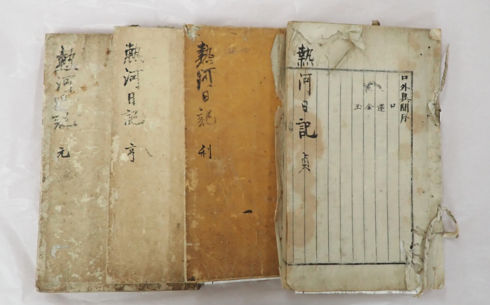 熱河日記 元
熱河日記 亨
熱河日記 利
熱河日記 貞